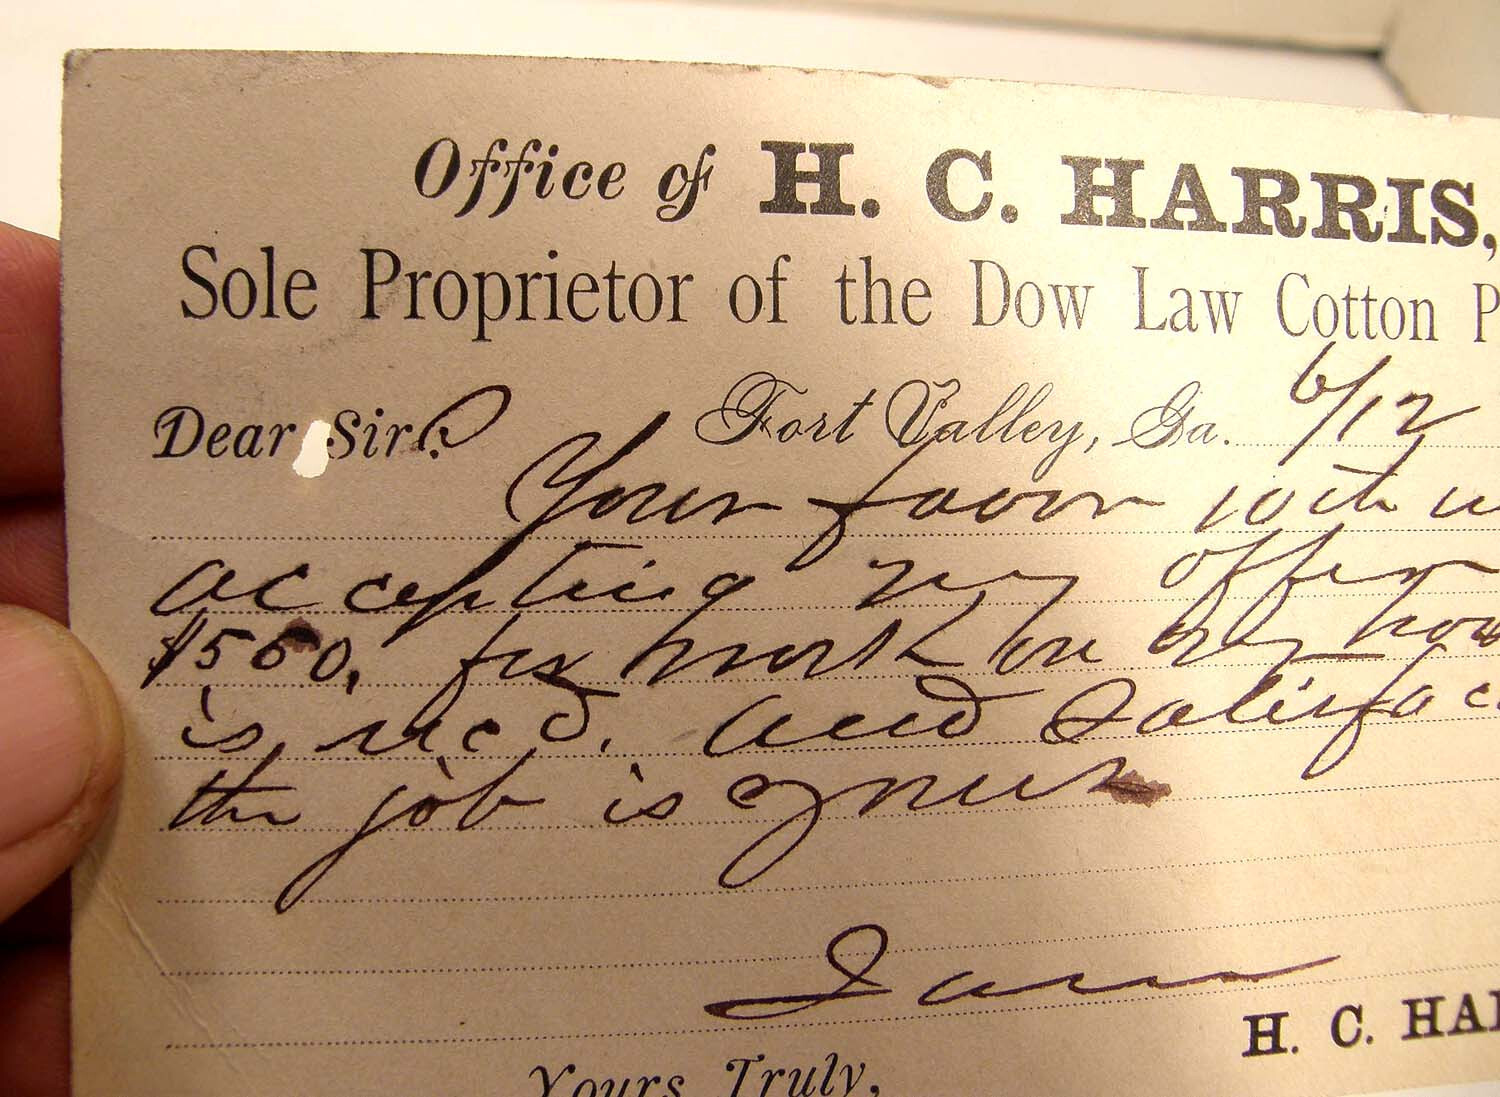 Office of H. C. HARRIS,
Sole Proprietor of the Dow Law Cotton P
Dear Sir:
Fort Valley, Ga. 6/12
Your favor 10th
accepting my offer
$550. for work on my hou
is recd. and Satisfac
the job is yours
I am
H. C. HAR
Yours Truly,